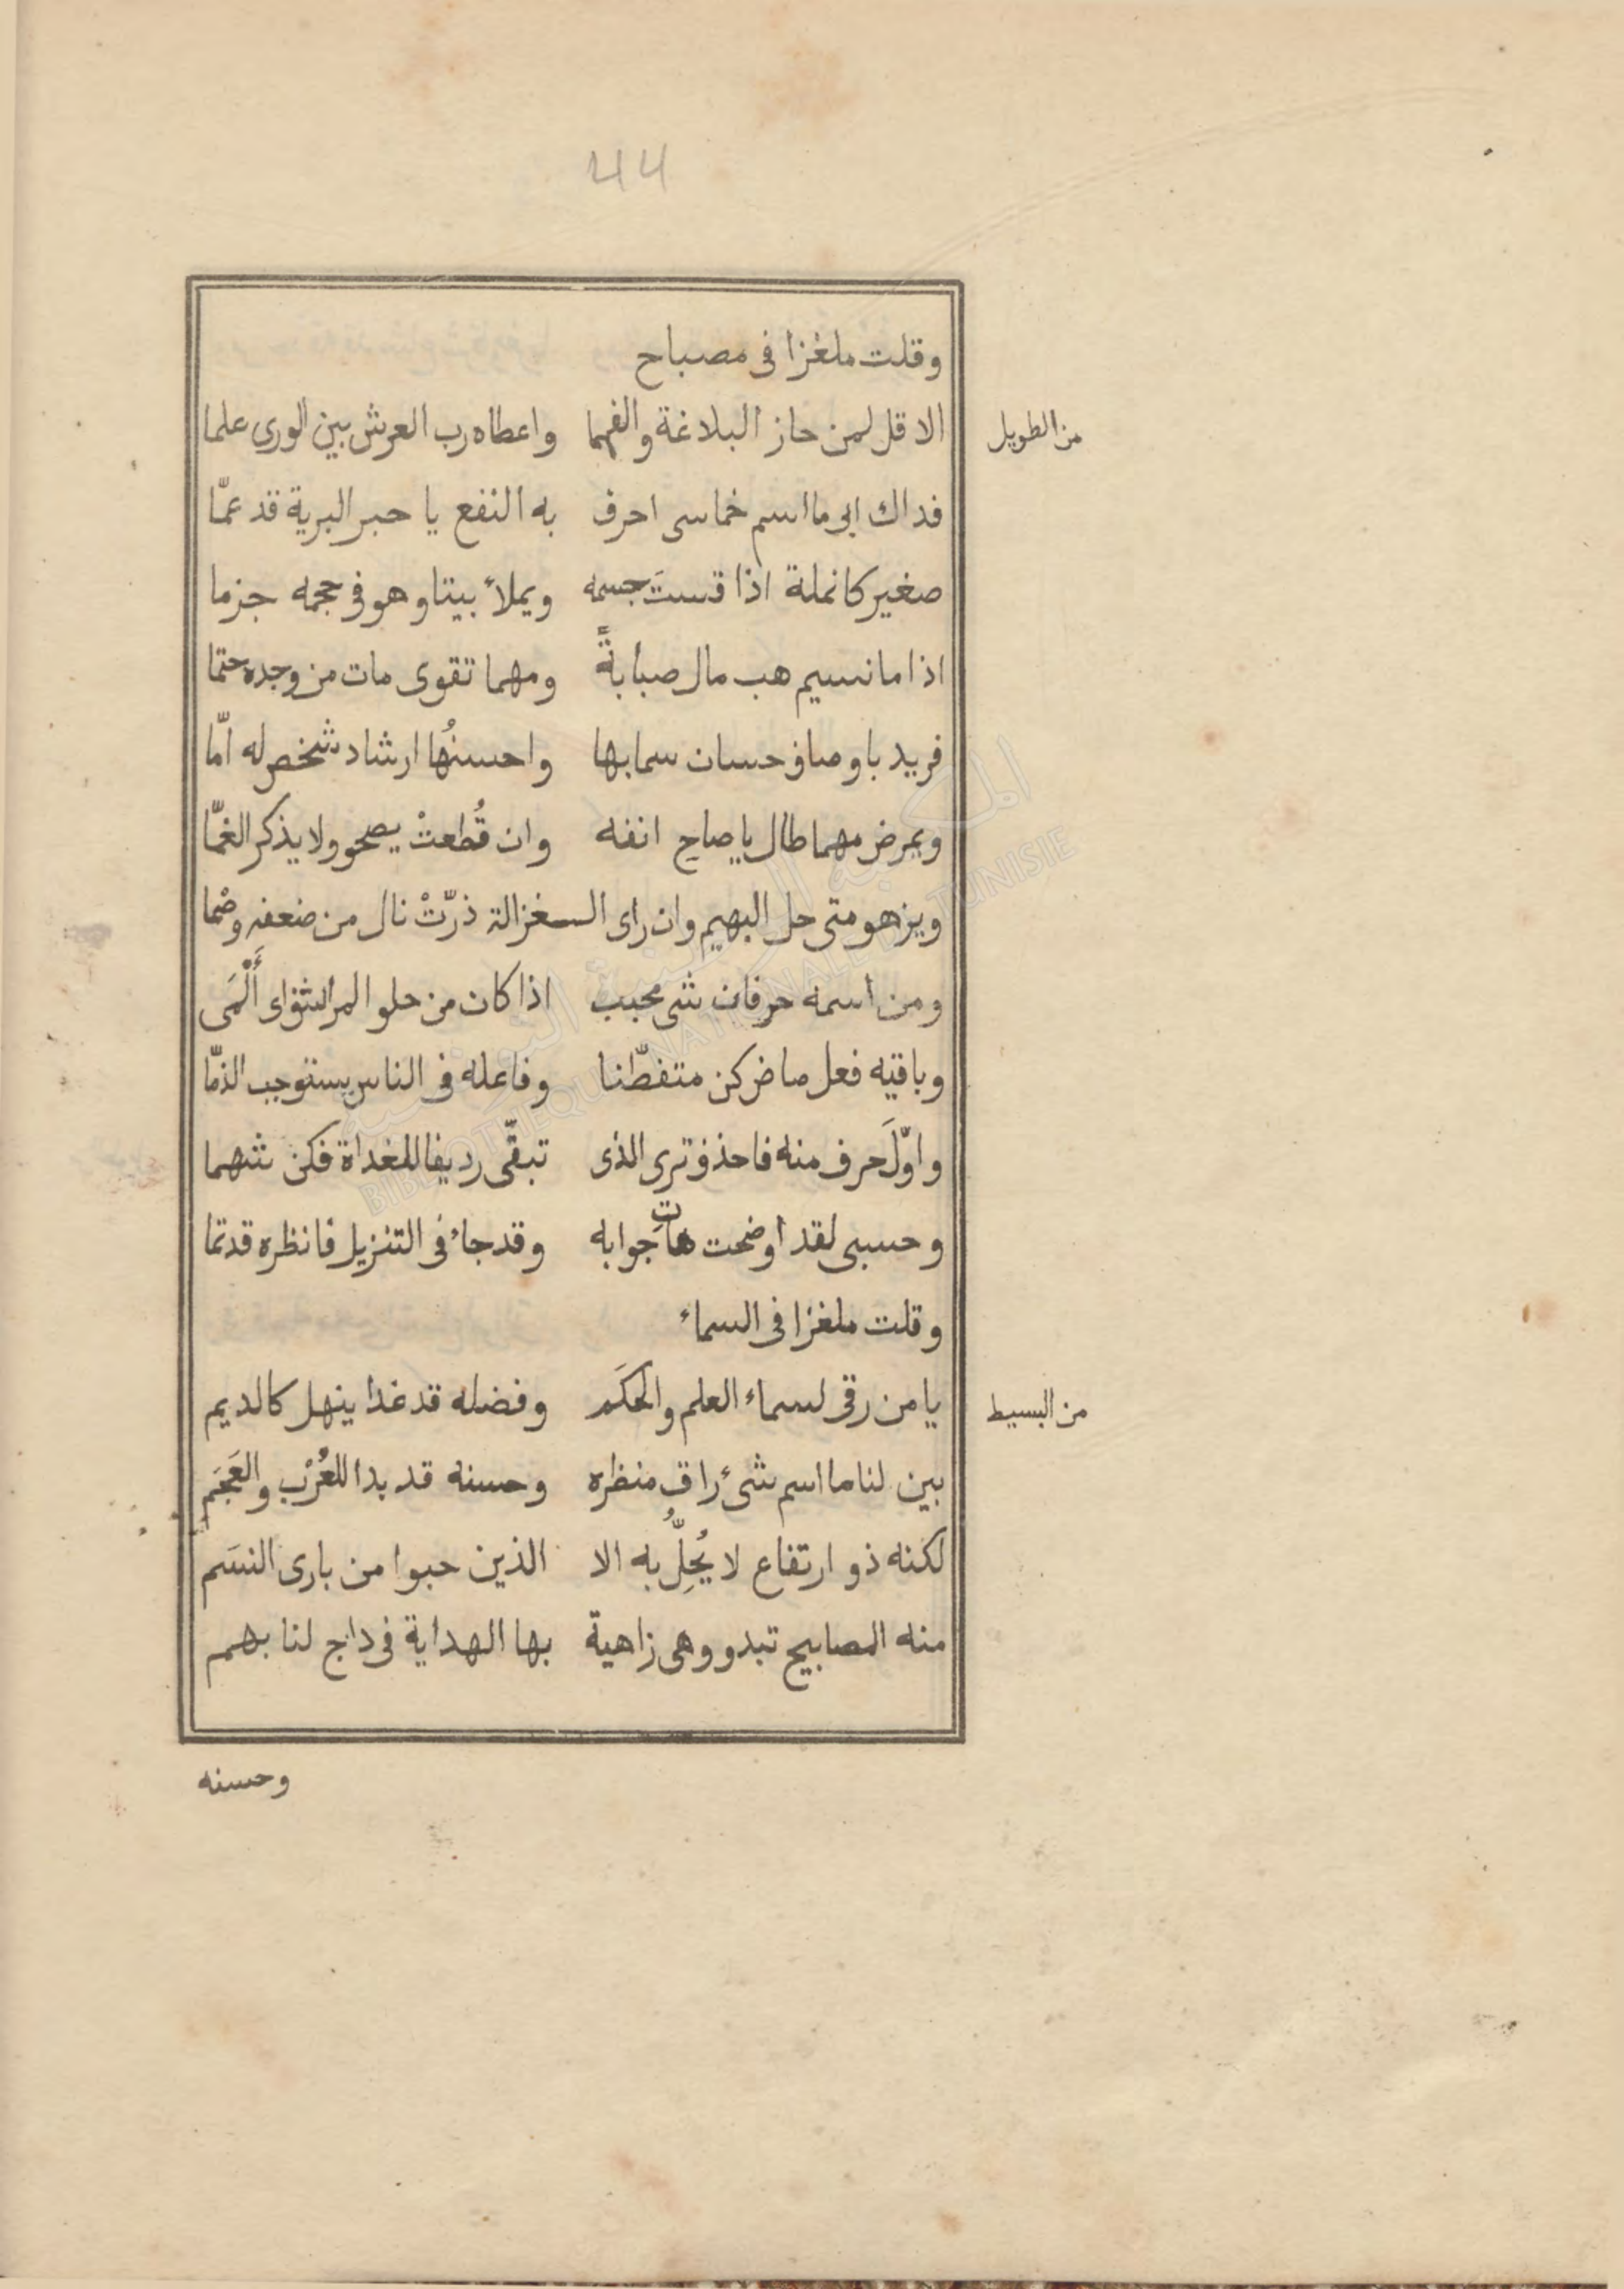 44
وقلت ملغزا فى مصباح
من الطويل
الا قل لمن حاز البلاغة والفهما واعطاه رب العرش بين الورى علما
فداك ابى ما اسم خماسى احرف به النفع يا حبر البرية قد عمّا
صغير كانملة اذا قستَ جسمه ويملأ بيتا وهو فى حجمه جزما
اذا ما نسيم هب مال صبابةً ومهما تقوى مات من وجده حتما
فريد باوصاف حسان سما بها واحسنُها ارشاد شخص له امّا
ويمرض مهما طال يا صاح انفه وان قُطعتْ يصحو ولا يذكر الغمّا
ويزهو متى حل البهيم وان راى الـغزالة ذرّتْ نال من ضعفه وصْما
ومن اسمه حرفان شى محبب اذا كان من حلو المراشف اى أَلْمَى
وباقيه فعل ماض كن متفطّنا وفاعله فى الناس يستوجب الذمّا
واوّلَ حرف منه فاحذف ترى الذى تبقّى رديفا للغداة فكن شهما
وحسبى لقد اوضحت هاتِ جوابه وقد جاء فى التنزيل فانظره قد تما
وقلت ملغزا فى السماء
من البسيط
يا من رقى لسماء العلم والحكَم وفضله قد غدا ينهل كالديم
بين لنا ما اسم شىء راق منظره وحسنه قد بدا للعُرْب والعَجَم
لكنه ذو ارتفاع لا يُحِلُّ به الا الذين حبوا من بارى النسَم
منه المصابيح تبدو وهى زاهية بها الهداية فى داج لنا بهم
وحسنه
المكتبة الوطنية التونسية
BIBLIOTHEQUE NATIONALE DE TUNISIE